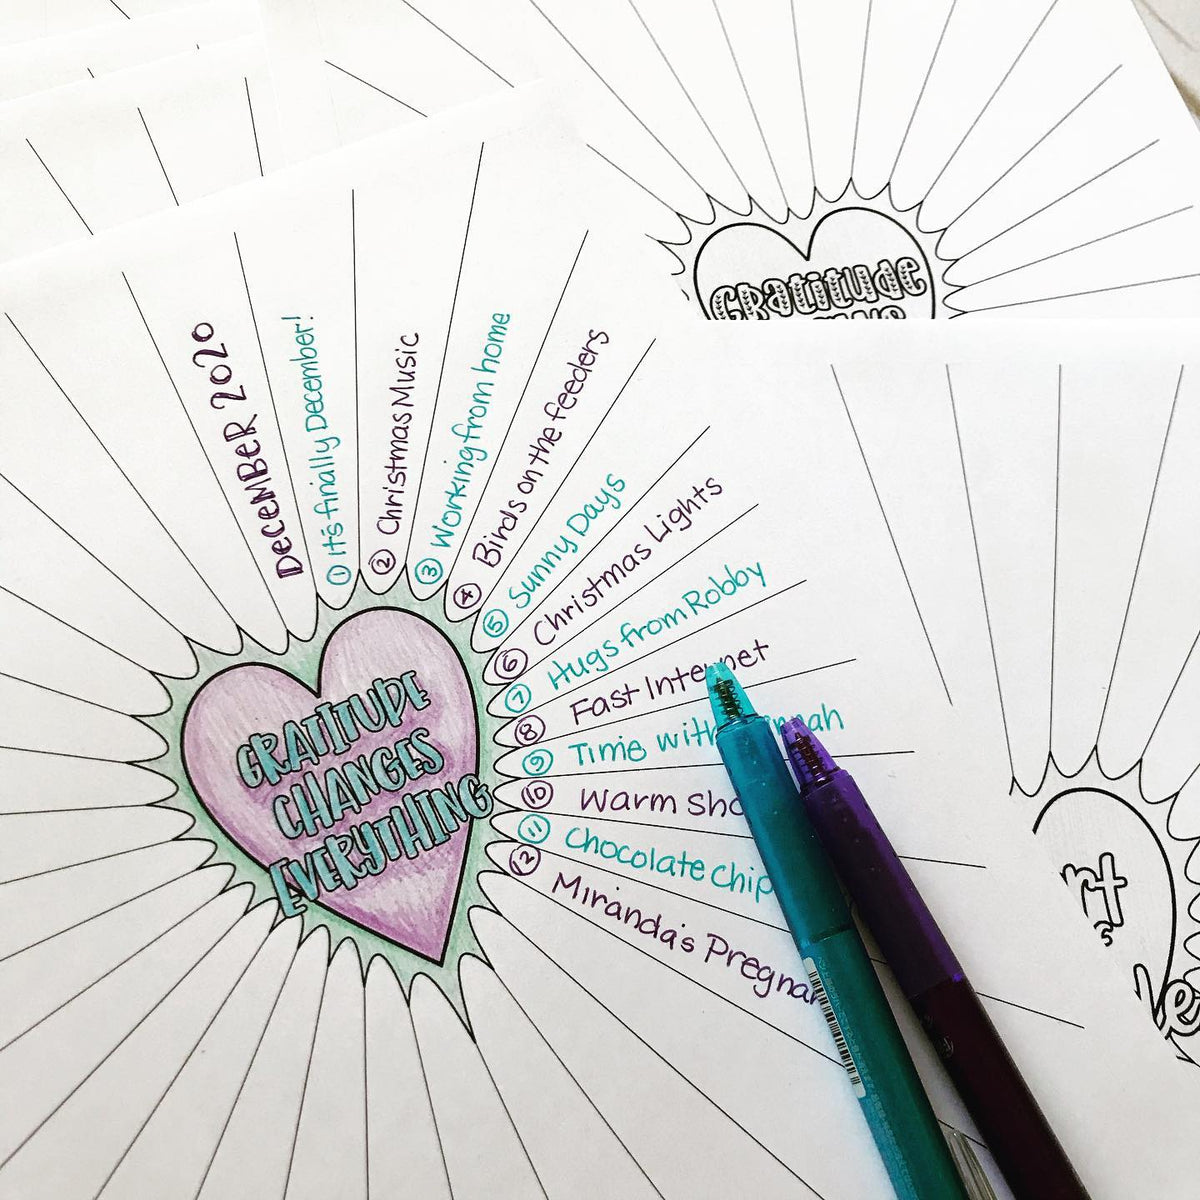 DECEMBER 2020
① It's finally December!
② Christmas Music
③ Working from home
④ Birds on the feeders
⑤ Sunny Days
⑥ Christmas Lights
⑦ Hugs from Robby
⑧ Fast Internet
⑨ Time with
⑩ Warm
⑪ Chocolate chip
⑫ Miranda's
GRATITUDE
CHANGES
EVERYTHING
GRatitude